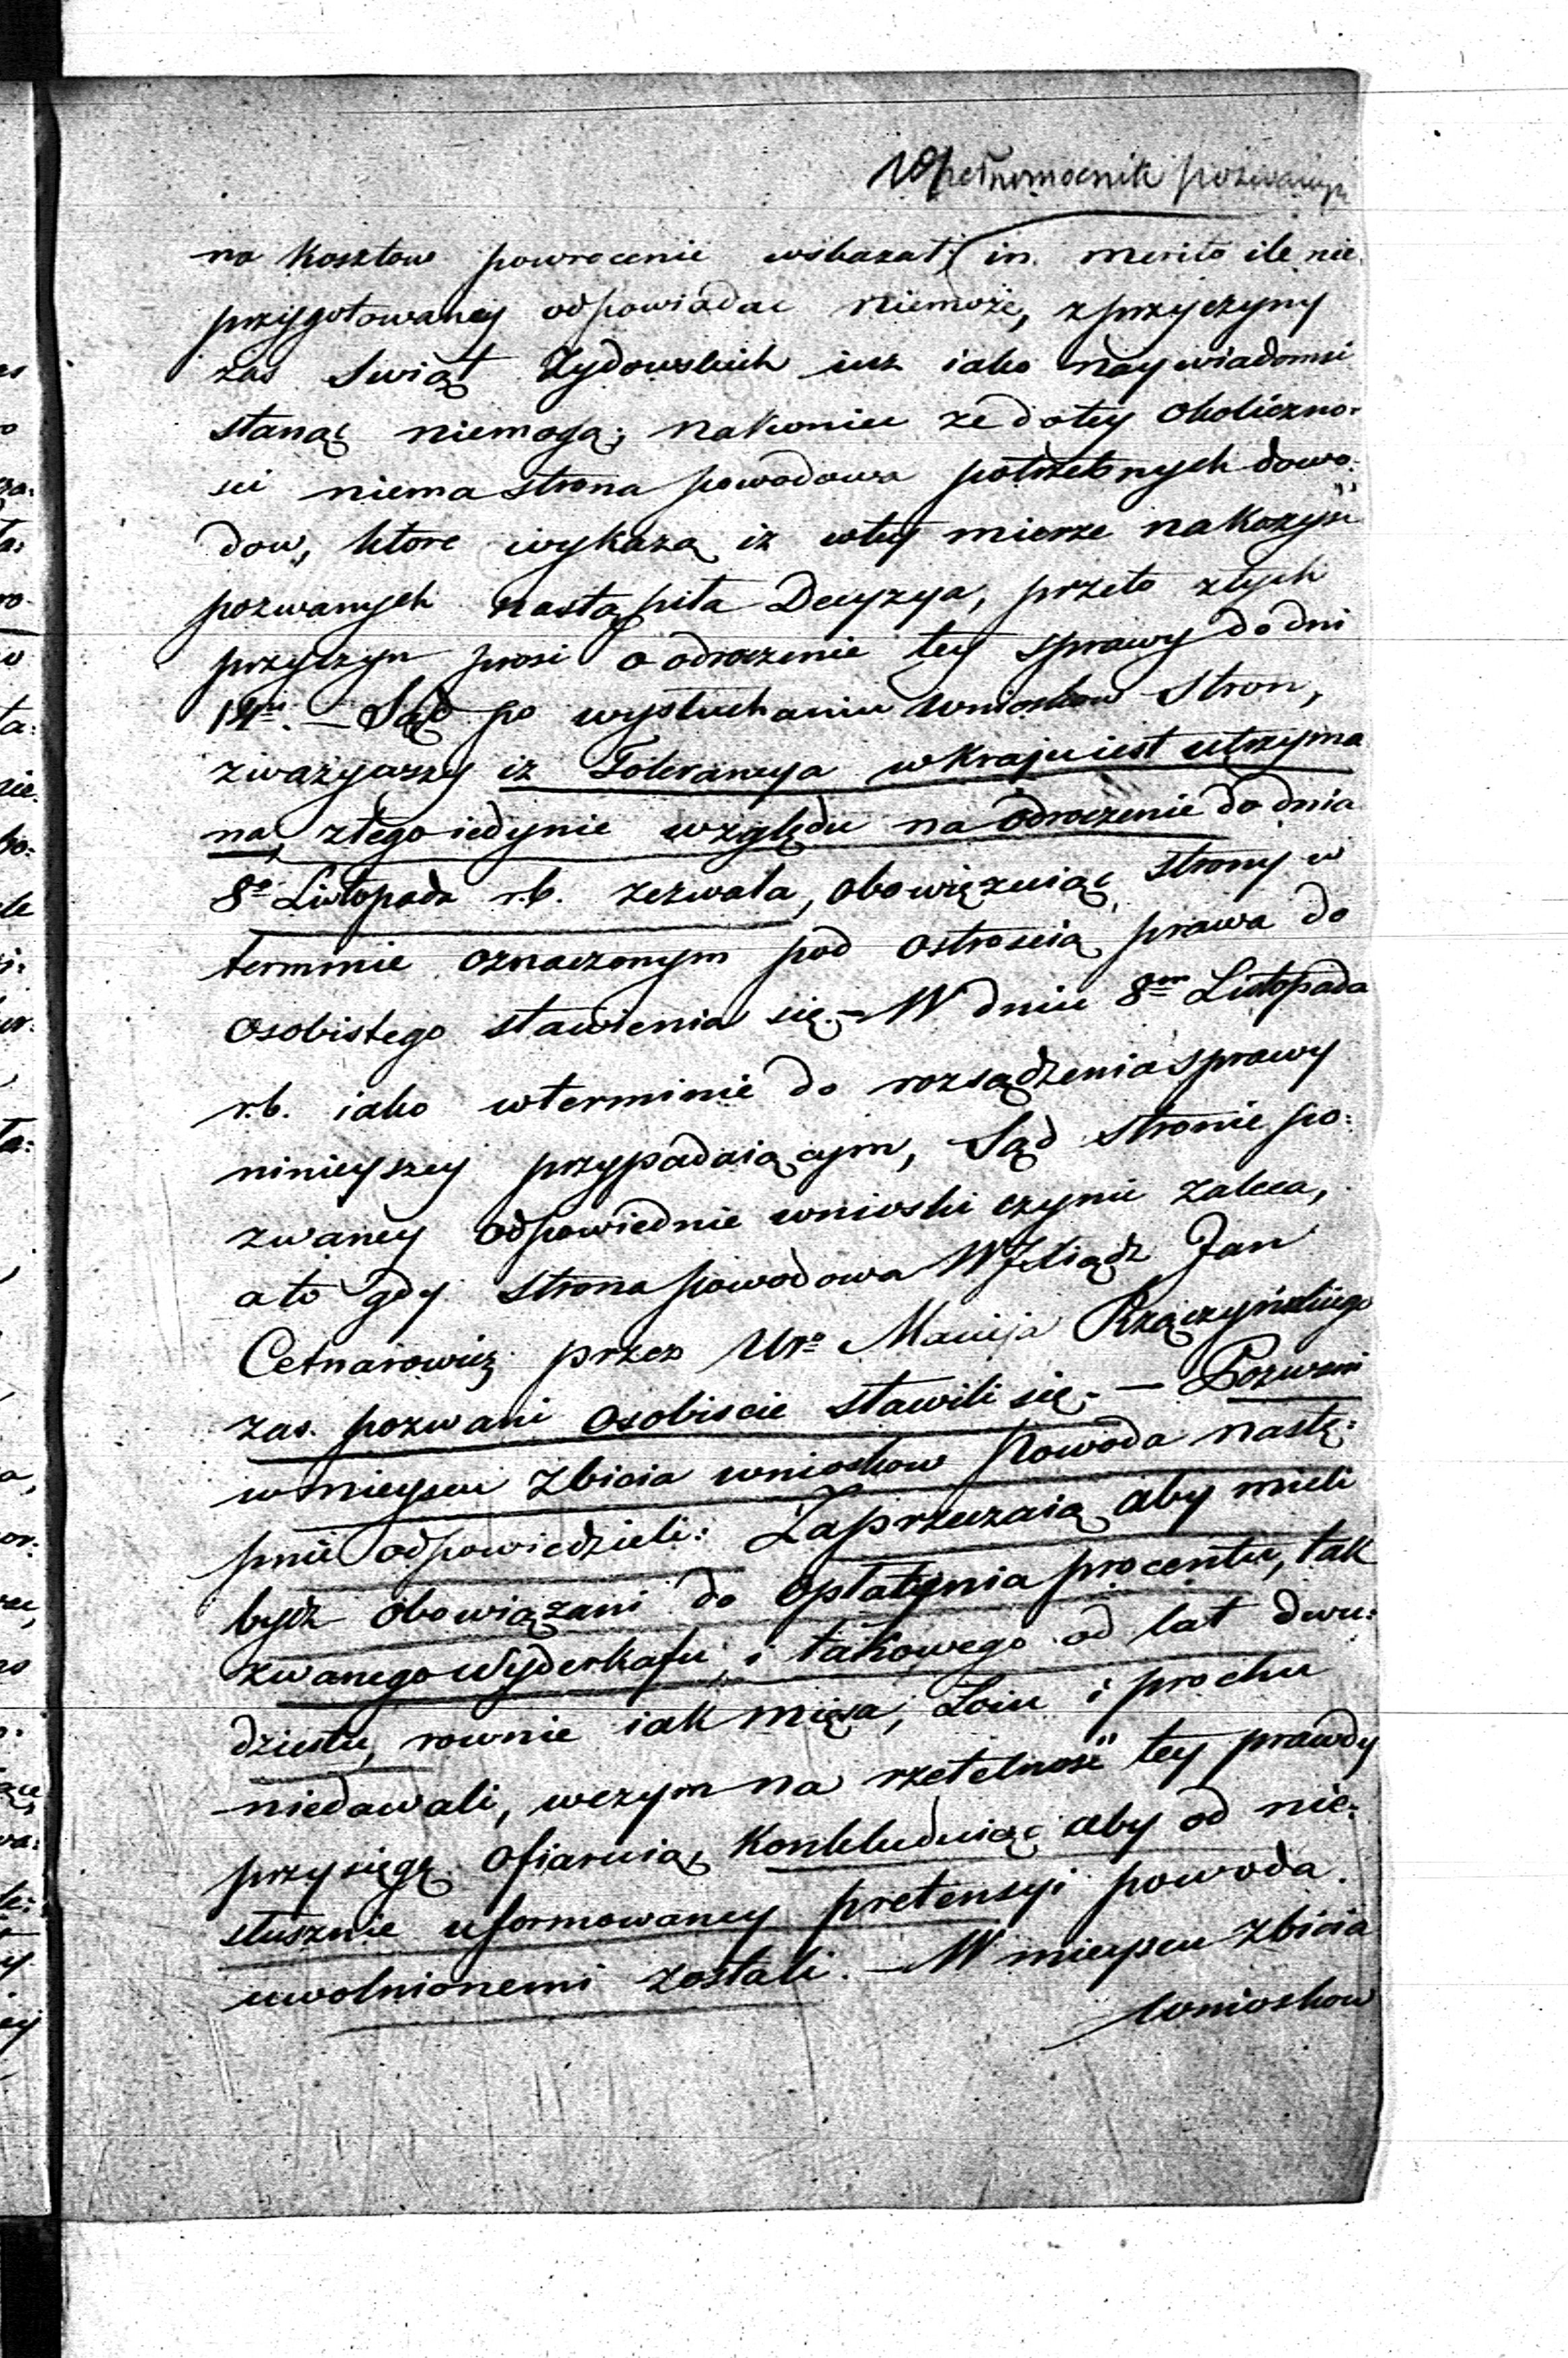 pełnomocnik pozwanych
na kosztow powrocenie wskazał; in merito ile nie
przygotowaney odpowiadac niemoże, z przyczyny
zas Swiąt Zydowskich iuz iako naywiadomsi
stanąc niemogą; nakoniec ze do tey okoliczno-
sci niema strona powodowa potrzebnych dowo:
dow, ktore wykażą iz w tey mierze na korzyść
pozwanych nastąpiła Decyzya, przeto z tych
przyczyn prosi o odroczenie tey sprawy do dni
14tu. — Sąd po wysłuchaniu wnioskow Stron,
zważywszy iz Tolerancya w kraju iest utrzyma
na, z tego iedynie względu na odroczenie do dnia
8o Listopada r.b. zezwala, obowięzuiąc strony w
terminie oznaczonym pod ostroscią prawa do
osobistego stawienia się. — W dniu 8m Listopada
r.b. iako w terminie do rozsądzenia sprawy
ninieyszey przypadaiącym, Sąd stronie po:
zwaney odpowiednie wnioski czynic zaleca,
a to gdy strona powodowa WJXiądz Jan
Cetnarowicz przez Uro Macieja Rzączyńskiego
zas pozwani osobiscie stawili się. — Pozwani
w mieyscu zbicia wnioskow Powoda nastę:
pnie odpowiedzieli: Zaprzeczaią aby mieli
bydz obowiązani do opłacenia procentu, tak
zwanego Wyderkafu, i takowego od lat dwu:
dziestu, rownie iak mięsa, Łoiu i prochu
niedawali, w czym na rzetelność tey prawdy
przysięgę ofiaruią, konkluduiąc aby od nie:
słusznie uformowaney pretensyi powoda
uwolnionemi zostali. — W mieyscu zbicia
wnioskow